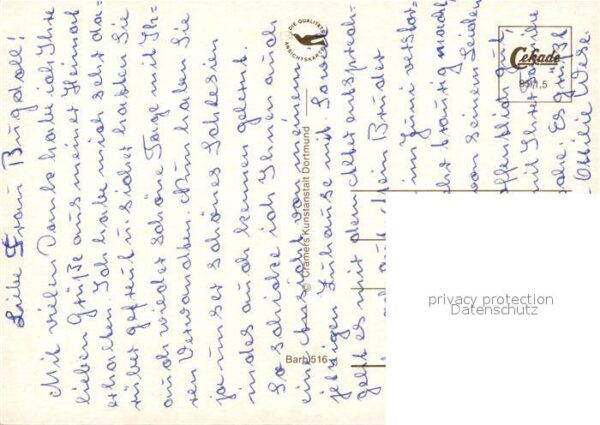 Liebe Frau Burgstall!
Mit vielen Dank habe ich Ihre
lieben Grüße aus meiner Heimat
erhalten. Ich habe mich sehr da-
rüber gefreut u. sicher hatten Sie
auch wieder schöne Tage mit Ih-
ren Verwandten. Nun haben Sie
ja unser schönes Schlesien
indes auch kennen gelernt.
So schicke ich Ihnen auch
eine Ansicht von meinem
jetzigen Zuhause mit. Soweit
geht es mit dem Alter entsprech-
Mein Bruder
im Juni verstor-
traurig macht
von seinem Leiden
offentlich gut,
mit Ihrer Familie
Es grüßt
Ottilie Wese
DIE QUALITÄTS
ANSICHTSKARTE
© Cramers Kunstanstalt Dortmund
Barh 516
Cekade
85/1,5
privacy protection
Datenschutz